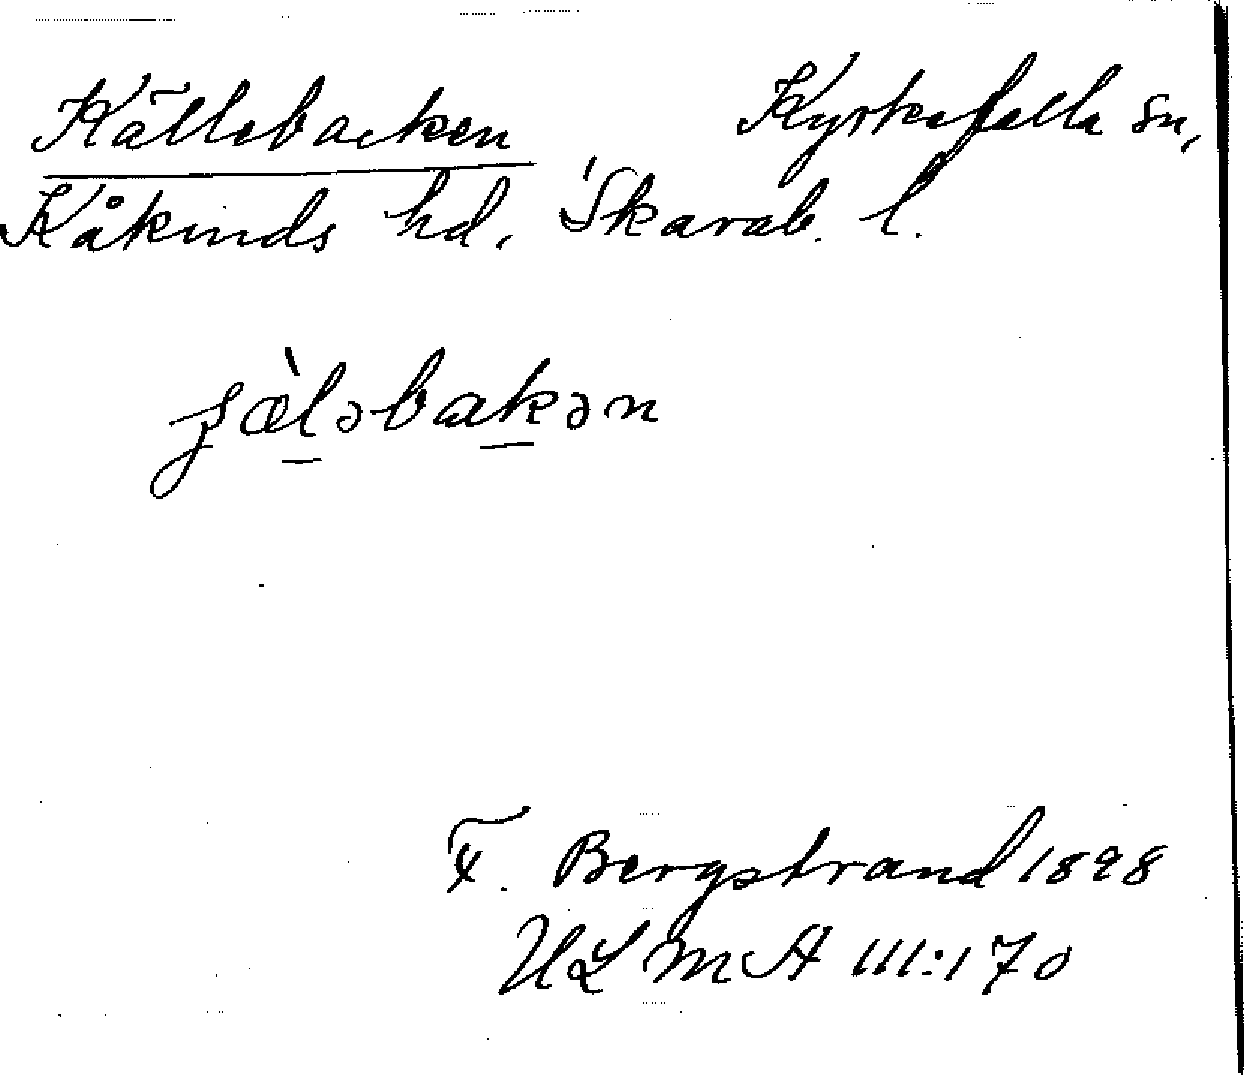 Källebacken Kyrkefalla sn,
Kåkinds hd, Skarab. l.
F. Bergstrand 1898
ULMA III:170